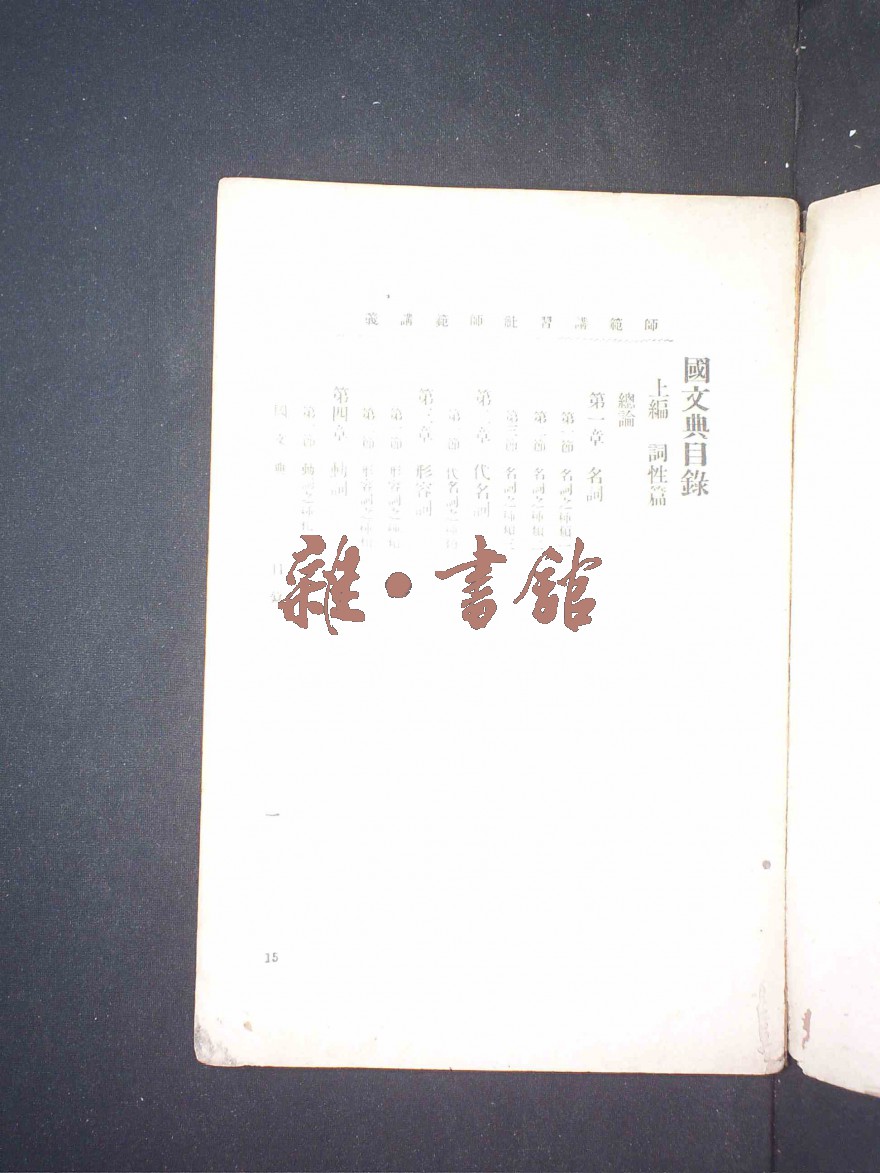 師範講習社師範講義
國文典目錄
上編 詞性篇
總論
第一章 名詞
第一節 名詞之種類一
第二節 名詞之種類二
第三節 名詞之種類三
第二章 代名詞
第一節 代名詞之種類
第三章 形容詞
第一節 形容詞之種類
第二節 形容詞之種類
第四章 動詞
第一節 動詞之種類
國文典 目錄
一
15
雜·書館